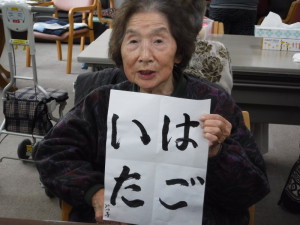 はご
いた